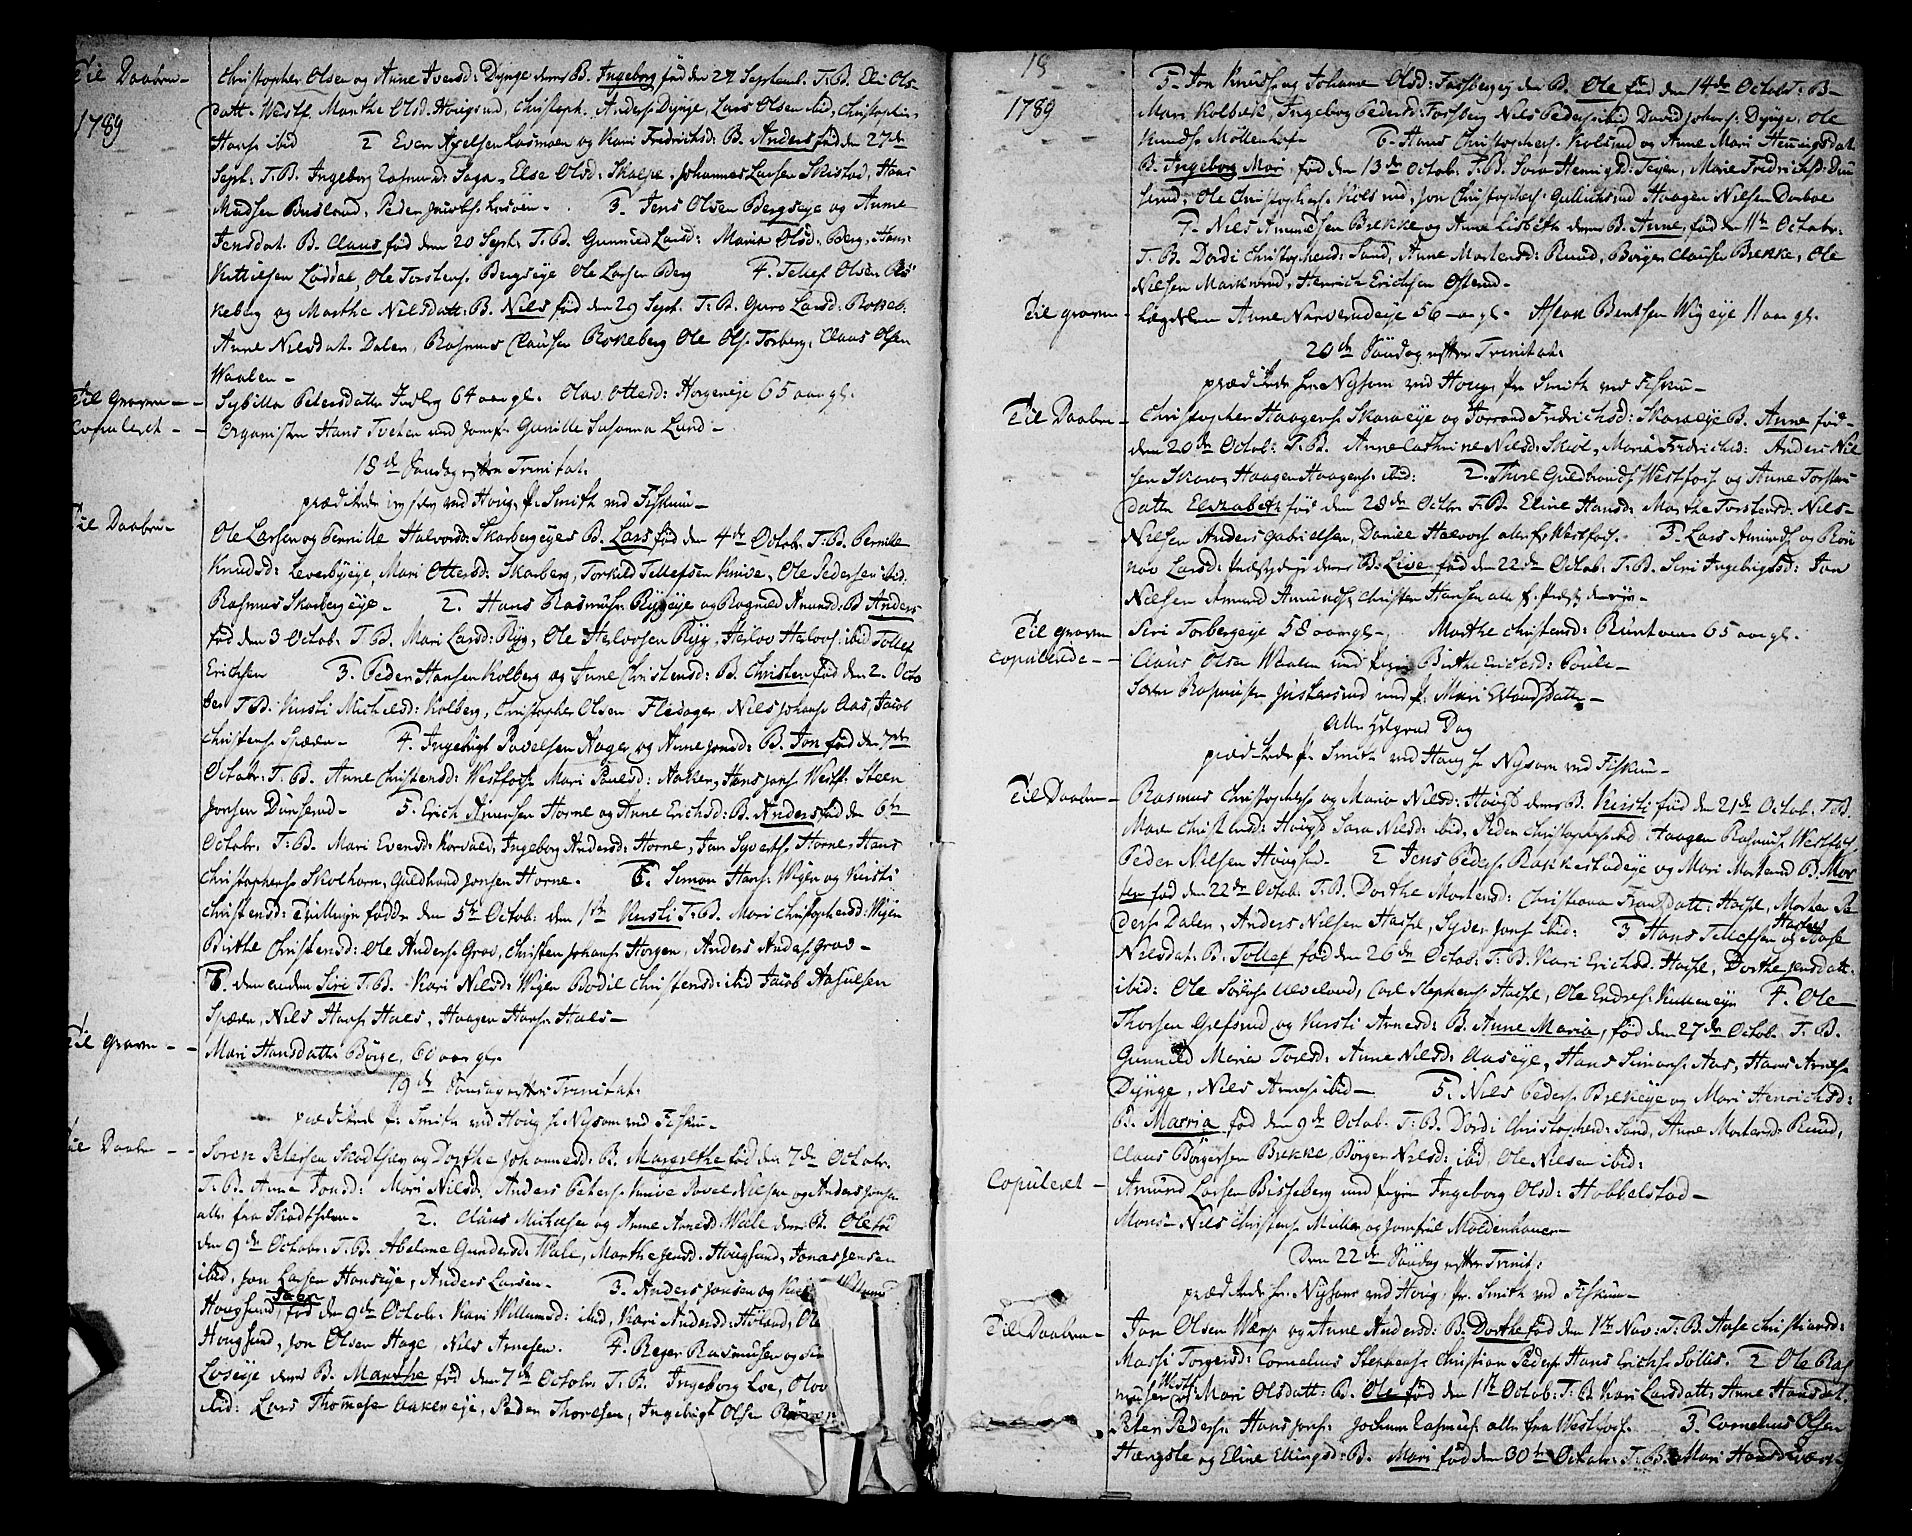 Til Daaben –
1789
Christopher Olsen og Anne Iversd: Dynge deres B. Ingeborg fød den 27 Septemb. T.B. Eli Ols-
datt. Westf. Marthe Olsd. Hougsrud, Christoph. Anders: Dynge, Lars Olsen ibid, Christopher
Hans: ibid 2 Even Axelsen Losmoen og Kari Fredrichsd: B. Anders fød den 27de
Sept. T.B. Ingeborg Rasmusd: Saga, Else Olsd: Skalpe, Johannes Larsen Skistad, Hans
Madsen Busland, Peder Jacobs: 3. Jens Olsen Bergseye og Anne
Jensdat. B. Claus fød den 20 Sept. T.B. Gunnild Larsd: Maria Olsd: Berg, Hans
Kittilsen Loddel, Ole Torstens: Bergseye Ole Larsen Berg 4. Tellef Olsen Ros
keberg og Marthe Nilsdatt: B. Nils fød den 29 Sept. T.B. Guro Larsd: Roskeb.
Anne Nilsdat. Dalen, Rasmus Clausen Roskeberg Ole Ols: Torberg, Claus Olsen
Waalen –
Til Graven – Sybilla Petersdatter Foss 64 aar gl. Olav Ottersd: Horgeneye 65 aar gl.
Copuleret – Organisten Hans Tveten med Jomfr. Gunille Susanna Lund –
18de Søndag efter Trinitat:
prædikede ieg selv ved Houg, hr. Smith ved Fiskum –
Til Daaben –
Ole Larsen og Pernille Halvorsd: Skarbergeyes B. Lars fød den 4de Octob. T.B. Pernille
Knudsd: Leverbyeye, Mari Ottersd: Skarberg, Torkild Tellefsen Knive, Ole Pedersen ibid.
Rasmus Skarbergeye – 2. Hans Rasmus: Rygeye og Ragnild Amunsd: B. Anders
fød den 3 Octob. T.B. Mari Larsd: Ryg, Ole Halvorsen Ryg, Halvor Halvors: ibid Tollef
Erichsen 3. Peder Hansen Kolberg og Anne Christensd: B. Christen fød den 2. Octo
ber T.B. Kirsti Michelsd: Kolberg, Christopher Olsen Fledager, Nils Johans: Aas, Jacob
Christens: Spæren – 4. Ingebrigt Povelsen Aager og Anne Jonsd: B. Jon fød den 7de
Octobr: T.B. Anne Christensd: Westfos: Mari Paulsd: Aaker, Hans Jons: Westf. Steen
Jonsen Dunserud – 5. Erich Amunsen Horne og Anne Erichsd: B. Anders fød den 6te
Octobr. T.B. Mari Evensd: Korvald, Ingeborg Andersd: Horne, Jon Syverts: Horne, Hans
Christophers: Skolhorn, Guldbrand Jonsen Horne. 6. Simon Hans: Wigen og Kirsti
Christensd: Tvillinger fødde den 5te Octob: den 1ste Kirsti T.B. Mari Christophersd: Wigen
Birthe Christensd: Ole Anders: Grav, Christen Johans: Horgen, Anders Anders: Grav –
6. den anden Siri T.B. Kari Nilsd: Wigen Bodil Christensd: ibid Jacob Aslulsen
Spæren, Nils Hans: Hals, Haagen Hans: Hals –
Til Graven – – Mari Hansdatter Børge, 60 aar gl.
19de Søndag efter Trinitat.
prædikede hr. Smith ved Houg hr. Nysom ved Fiskum –
Til Daaben – –
Soren Petersen Skodtselv og Dorthe Johannesd: B. Margrethe fød den 7de Octobr.
T.B. Anne Jonsd: Mari Nilsd. Anders Peters: Knive Povel Nilsen og Anders Jonsen
alle fra Skodtselv – 2. Claus Michelsen og Anne Arnesd Wæle deres B. Ole fød
den 9de Octobr. T.B. Abelone Gundersd: Wæle, Marthe Jensd. Hougsund, Jonas Jensen
ibid, Jon Larsen Hanseye, Anders Larsen – 3. Anders Jonsen og Kari Willumsd
Hougsund Jacob fød den 9de Octobr. Kari Willumsd: ibid, Kari Andersd: Høland, Ole
Hougsund, Jon Olsen Hage, Nils Arnesen. 4. Roger Rasmussen og Siri
Loeseye deres B. Marthe fød den 7de Octobr. T.B. Ingeborg Loe, Olav
ibid: Lars Thomesen Aakereye, Peder Thoresen, Ingebrigt Olsen
18
1789
5. Jon Knuds: og Johanne Olsd: Fossbergey den B. Ole fød den 14de Octob: T.B.
Mari Kolbrek, Ingeborg Pedersd: Fossberg Nils Peders: ibid David Johans: Dynge, Ole
Knuds: Møllenhof 6. Hans Christophers: Kolsrud og Anne Mari Henningsdat.
B. Ingeborg Mari, fød den 13de Octob. T.B. Sara Hennigsd: Teigen, Marie Fredrichsd: Dun
serud, Ole Christophers: Kolsrud, Jon Christophers: Gulliksrud Haagen Nilsen Dorboe
7. Nils Amundsen Brekke og Anne Lisbeth deres B. Anne, fød den 11te Octobr.
T.B. Dordi Christophersd: Sand, Anne Mortensd: Ruud, Børger Clausen Brekke, Ole
Nilsen Markerud, Henrich Erichsen Østerud –
Til graven – Lægdslem Anne Narverudeye 56 aar gl. Aslak Bentsen Wigeye 11 aar gl.
20de Søndag efter Trinitat:
prædikede hr. Nysom ved Houg, hr. Smith ved Fiskum –
Til Daaben –
Christopher Haagens: Skaraeye og Jorrand Fredrichsd: Skaraeye B. Anne fød
den 20de Octob: T.B. Anne Cathrine Nilsd: Skøl, Maria Fredrichsd: Anders Niel
sen Skara, Haagen Haagens: ibid: 2. Thore Guldbrands: Westfos: og Anne Torstens
datter Elizabeth fød den 28de Octbr. T.B. Eline Hansd: Marthe Torstensd: Nils
Nielsen Anders Gabrielsen, Daniel Halvors: alle fr. Westfos. 3. Lars Amunds: og Røn
nov Larsd: deres B. Live fød den 22de Octob: T.B. Siri Ingebrigtsd: Jon
Nielsen Amund Amunds: Christen Hansen alle f.
Til graven Siri Torbergeye 58 aar gl. Marthe Christensd: 65 aar gl.
Copulerede – – Claus Olsen Waalen med pigen Birthe Erichsd: Poule –
Soren Rasmusen Justerud med p. Mari Ewandsdatter –
Alle Helgens Dag
prædikede hr. Smith ved Houg hr. Nysom ved Fiskum –
Til Daaben – Rasmus Christophers: og Maria Nilsd: Hougs: deres B. Kirsti fød den 21de Octob. T.B.
Maren Christensd: Hougs: Sara Nilsd: ibid, Peder Christophers: ibid: Haagen Rasmus: Westfos:
Peder Nilsen Hougsrud. 2 Jens Peders: Rakkestadeye og Mari Mortensd B. Mor
ten fød den 22de Octob. T.B. Dorthe Mortensd: Christiana Fransdatt: Hassel, Morten Pe
ders: Dalen, Anders Nilsen Hassel, Syver Jons: ibid: 3 Hans Tellefsen Hassel og Aase
Nilsdat. B. Tollef fød den 26de Octob. T.B. Kari Erichsd: Hassel, Dorthe Jensdatt:
ibid: Ole Sørens: Ulveland, Carl Stephens: Hassel, Ole Endres: 4. Ole
Thorsen Grefsrud og Kirsti Arnesd: B. Anne Maria, fød den 27de Octob. T.B.
Gunnild Maria Toresd: Anne Nilsd: Aaseye, Hans Simons: Aas, Hans Arnes:
Dynge, Nils Arnes: ibid – 5. Nils Peders: Brekeye og Mari Henrichsd:
B. Marria fød den 9de Octob. T.B. Dordi Christophersd: Sand, Anne Mortensd: Ruud,
Claus Børgersen Brekke, Børger Nilsd: ibid, Ole Nilsen ibid:
Copuleret – Amund Larsen Bisseberg med pigen Ingeborg Olsd: Hobbelstad –
Mons: Nils Christens: Müller og Jomfrue Moldenhauer –
Den 22de Søndag efter Trinit:
prædikede hr. Nysom ved Houg. hr. Smith ved Fiskum –
Til Daaben – Jon Olsen Warp og Anne Andersd: B. Dorthe fød den 1ste Nov: T.B. Aase Christiansd:
Massi Torgersd: Cornelius Stephens: Christian Peders: Hans Erichs: Sollis. 2 Ole Ras
musen Westf. og Mari Olsdatt: B. Ole fød den 1ste Octob: T.B. Kari Larsdatt: Anne Hansdat.
Peter Peders: Hans Jons: Jochum Rasmus: alle fra Westfos. 3 Cornelius Olsen
Hængsle og Eline Ellingsd: B. Mari fød den 30te Octobr. T.B. Mari Hansd